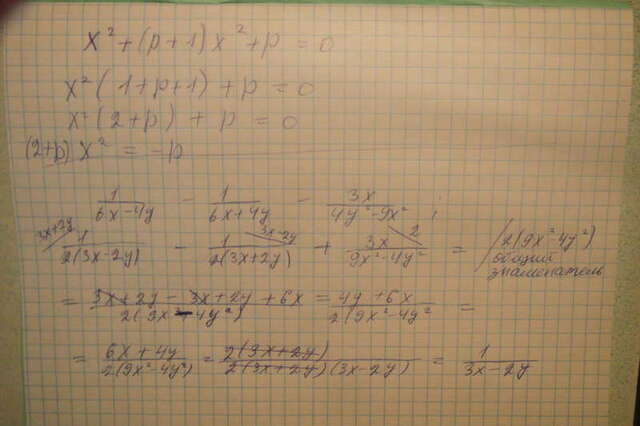 x² + (p+1)x² + p = 0
x²(1+p+1) + p = 0
x²(2+p) + p = 0
(2+p)x² = -p
1/(6x-4y) - 1/(6x+4y) - 3x/(4y²-9x²) ;
3x+2y/ 1/(2(3x-2y)) - 1/(2(3x+2y)) \3x-2y + 3x/(9x²-4y²) \2 = /2(9x²-4y²)
общий
знаменатель
= (3x+2y-3x+2y+6x)/(2(9x²-4y²)) = (4y+6x)/(2(9x²-4y²)) =
= (6x+4y)/(2(9x²-4y²)) = 2(3x+2y)/(2(3x+2y)(3x-2y)) = 1/(3x-2y)